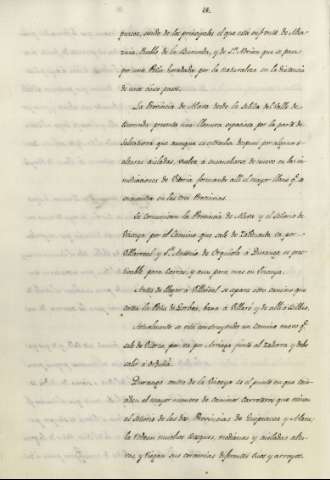 28.
puzcoa, siendo de los principales el que está enfrente de Ala-
zania, Pueblo de la Burunda, y de Sn. Adrian que se pasa
por una Peña horadada por la naturaleza en la distancia
de unos cinco pasos.
La Provincia de Alava desde la salida del Valle de
Burunda presenta una llanura espaciosa por la parte de
Salvatierra que aunque se estrecha despues por algunas
alturas aisladas, vuelve á ensancharse de nuevo en las in-
mediaciones de Vitoria formando alli el mayor llano q.e
se encuentra en las tres Provincias.
Se comunican la Provincia de Alava y el Señorio de
Vizcaya por el Camino que sale de Vitoria va por
Villarreal y Sn. Antonio de Urquiola á Durango es prac-
ticable para Carros, y aun para
Antes de llegar á Villarreal se separa otro camino que
entra la Peña de Gorbea, baxa á Villaró y de alli á Bilbao.
Actualmente se está construyendo un Camino nuevo q.e
sale de Vitoria, por va por Arriaga junto al Zadorra y debe
salir á Orduña.
Durango entra de la Vizcaya es el punto en que con-
el mayor numero de caminos carreteros que vienen
al Señorio de las dos Provincias de Guipuzcoa y Alava
la rodean muchos Bosques, medianas y aisladas altu-
ras, y riegan sus cercanias diferentes rios y arroyos.